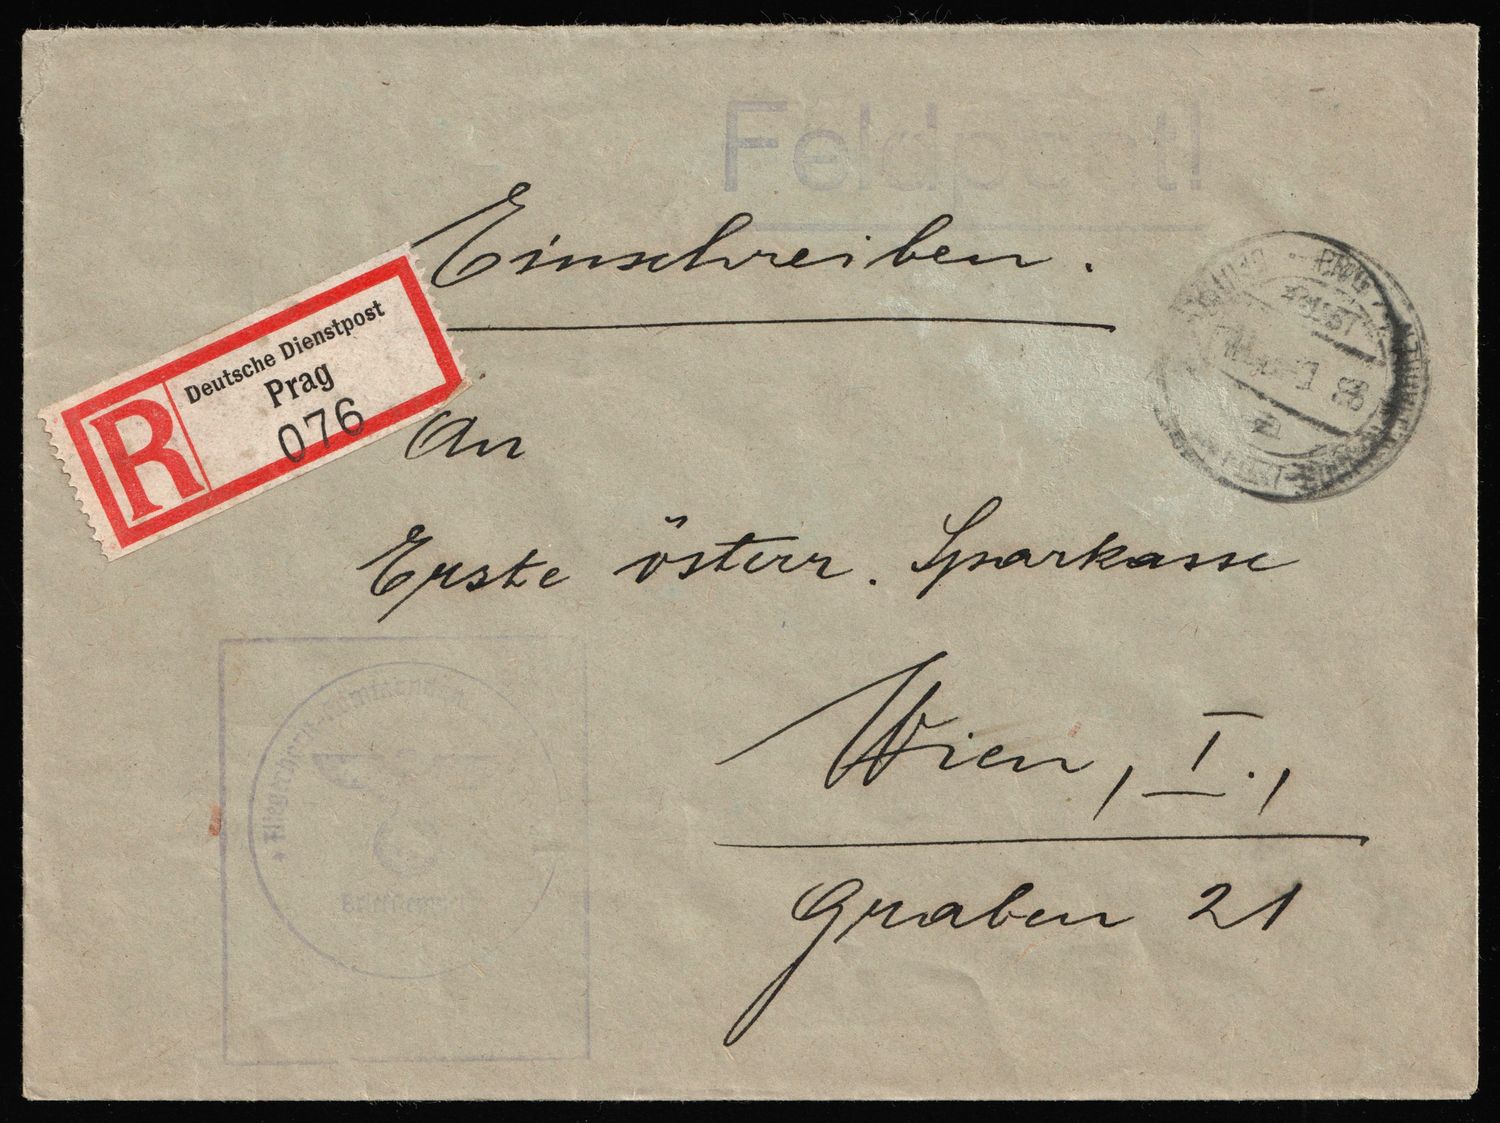 Feldpost!
Einschreiben.
R
Deutsche Dienstpost
Prag
076
An
Erste österr. Sparkasse
Wien, I.,
Graben 21
Briefstempel